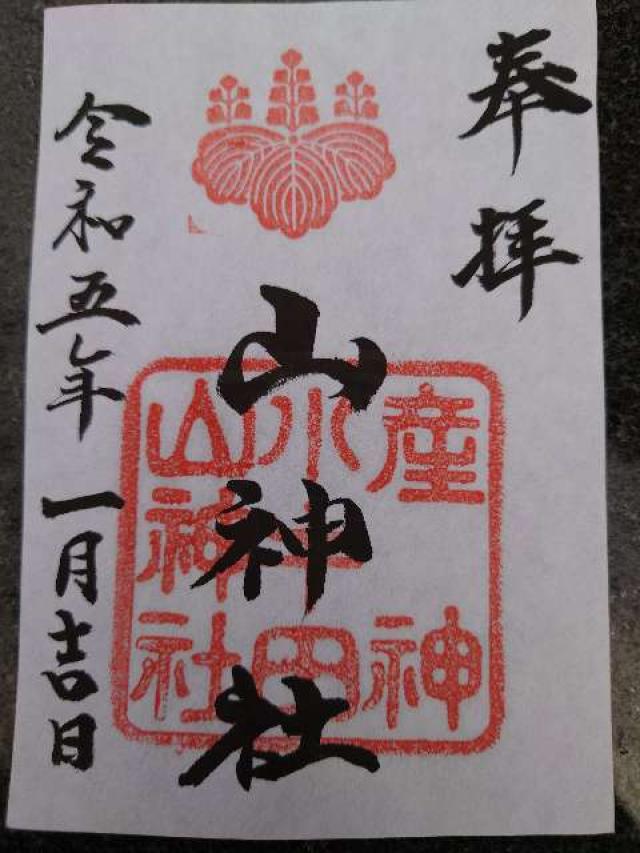 奉拝
山神社
令和五年一月吉日
産神
山神社